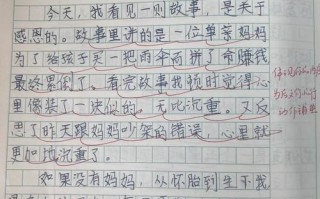 今天，我看见一则故事，是关于
感恩的。故事里讲的是一位单亲妈妈
为了给孩子买一把雨伞而拼了命赚钱
最终累倒了。看完故事我顿时觉得心
里像装了一块似的，无比沉重。又反
思了昨天跟妈妈吵架的错误，心里就
更加地沉重了。
如果没有妈妈，从怀胎到生下我